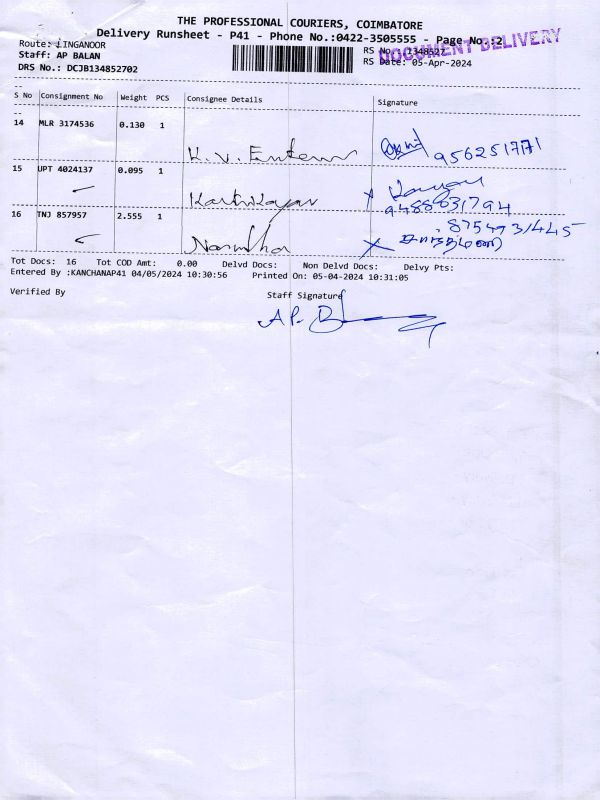 THE PROFESSIONAL COURIERS, COIMBATORE
Delivery Runsheet - P41 - Phone No.:0422-3505555 - Page No.:2
Route: LINGANOOR
RS No.: 1348527
DOCUMENT DELIVERY
Staff: AP BALAN
RS Date: 05-Apr-2024
DRS No.: DCJB134852702
S No Consignment No Weight PCS Consignee Details Signature
14 MLR 3174536 0.130 1
K. V. 9562517171
15 UPT 4024137 0.095 1
Karthikayan
9488831794
16 TNJ 857957 2.555 1
Tot Docs: 16 Tot COD Amt: 0.00 Delvd Docs: Non Delvd Docs: Delvy Pts:
Entered By :KANCHANAP41 04/05/2024 10:30:56 Printed On: 05-04-2024 10:31:05
Verified By Staff Signature
A.P. B